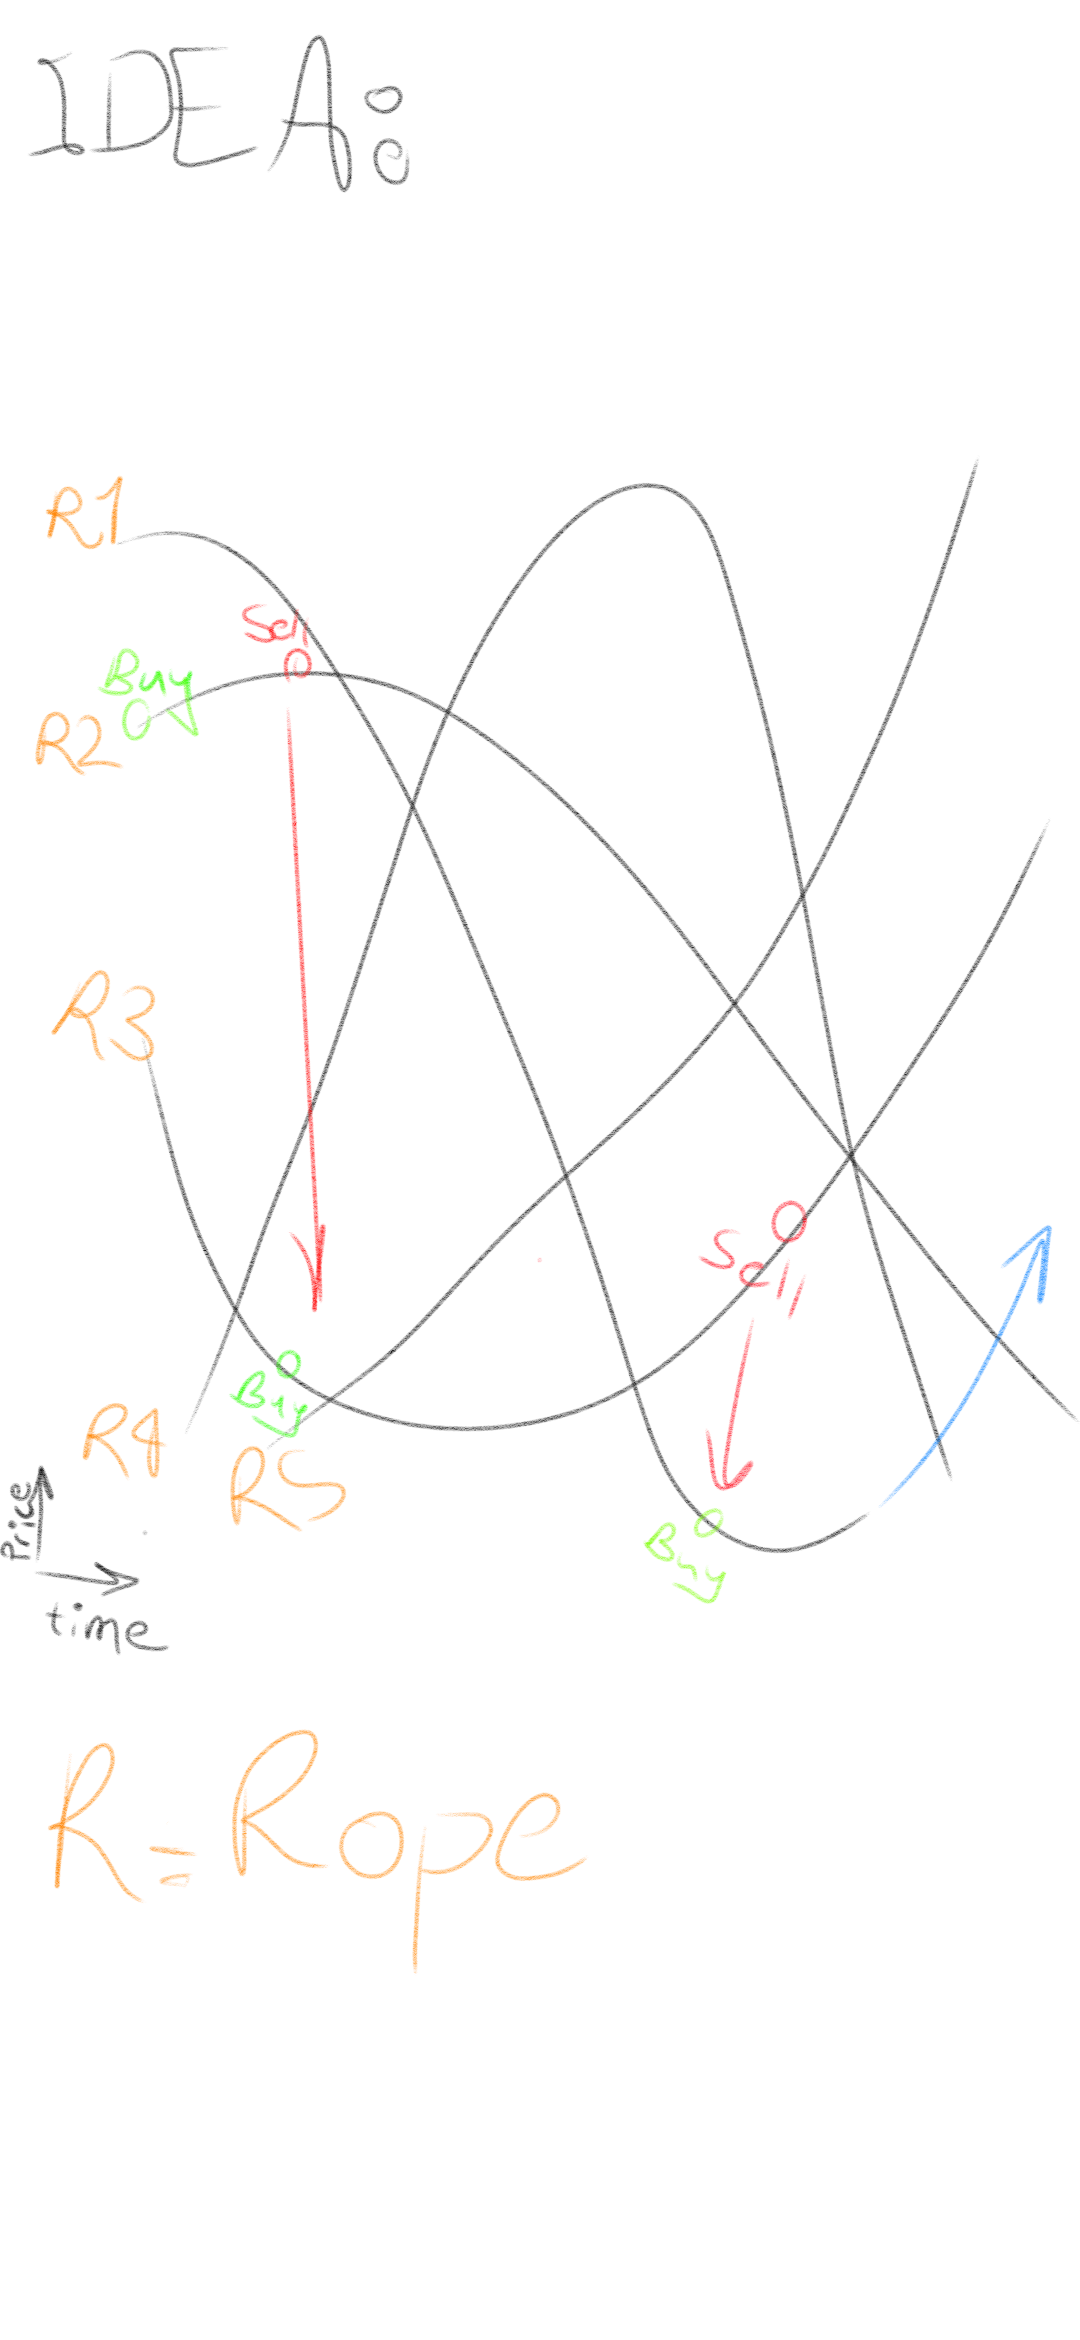 IDEA:
R1
Sell
Buy
R2
R3
Sell
Buy
R4
R5
Buy
Price
time
R=Rope